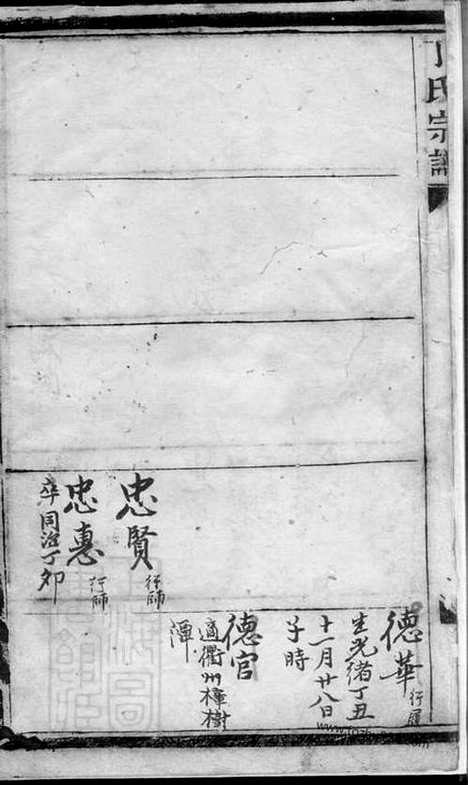 丁氏宗譜
忠賢
行師
忠惠
行師
卒同治丁夘
德華
生光緒丁丑
十一月廿八日
子時
德官
適衢州樟樹
潭